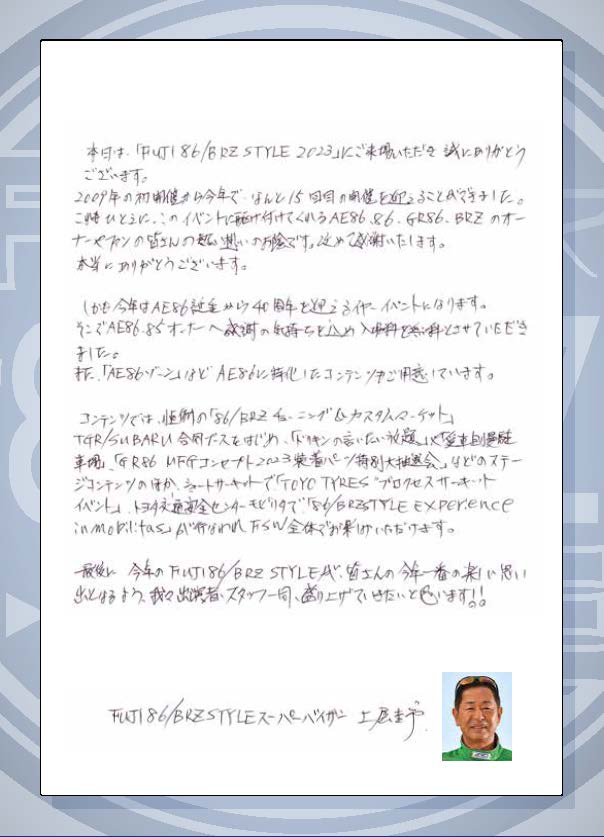 本日は、「FUJI 86/BRZ STYLE 2023」にご来場いただき 誠にありがとう
ございます。
2009年の初開催から今年で、なんと15回目の開催を迎えることができました。
これもひとえに、このイベントに駆け付けてくれるAE86、86、GR86、BRZのオー
ナーやファンの皆さんの熱い想いのお陰です。改めて感謝いたします。
本当にありがとうございます。
しかも今年はAE86誕生から40周年を迎えるイヤーイベントになります。
そこでAE86、85オーナーへ感謝の気持ちを込め入場料を無料とさせていただき
ました。
また、「AE86ゾーン」などAE86に特化したコンテンツもご用意しています。
コンテンツでは、恒例の「86/BRZチューニング&カスタムマーケット」
TGR/SUBARU合同ブースをはじめ、「ドリキンの言いたい放題」や「愛車自慢駐
車場」、「GR86 MFGコンセプト2023装着パーツ特別大抽選会」などのステー
ジコンテンツのほか、ショートサーキットで「TOYO TIRES プロクセスサーキット
イベント」、トヨタ交通安全センターモビリタで「86/BRZ STYLE EXPerience
in mobilitas」が行なわれFSW全体でお楽しみいただけます。
最後に 今年のFUJI 86/BRZ STYLEが、皆さんの今年一番の楽しい思い
出となるよう、我々出演者、スタッフ一同、盛り上げていきたいと思います!!
FUJI 86/BRZ STYLEスーパーバイザー 土屋圭市